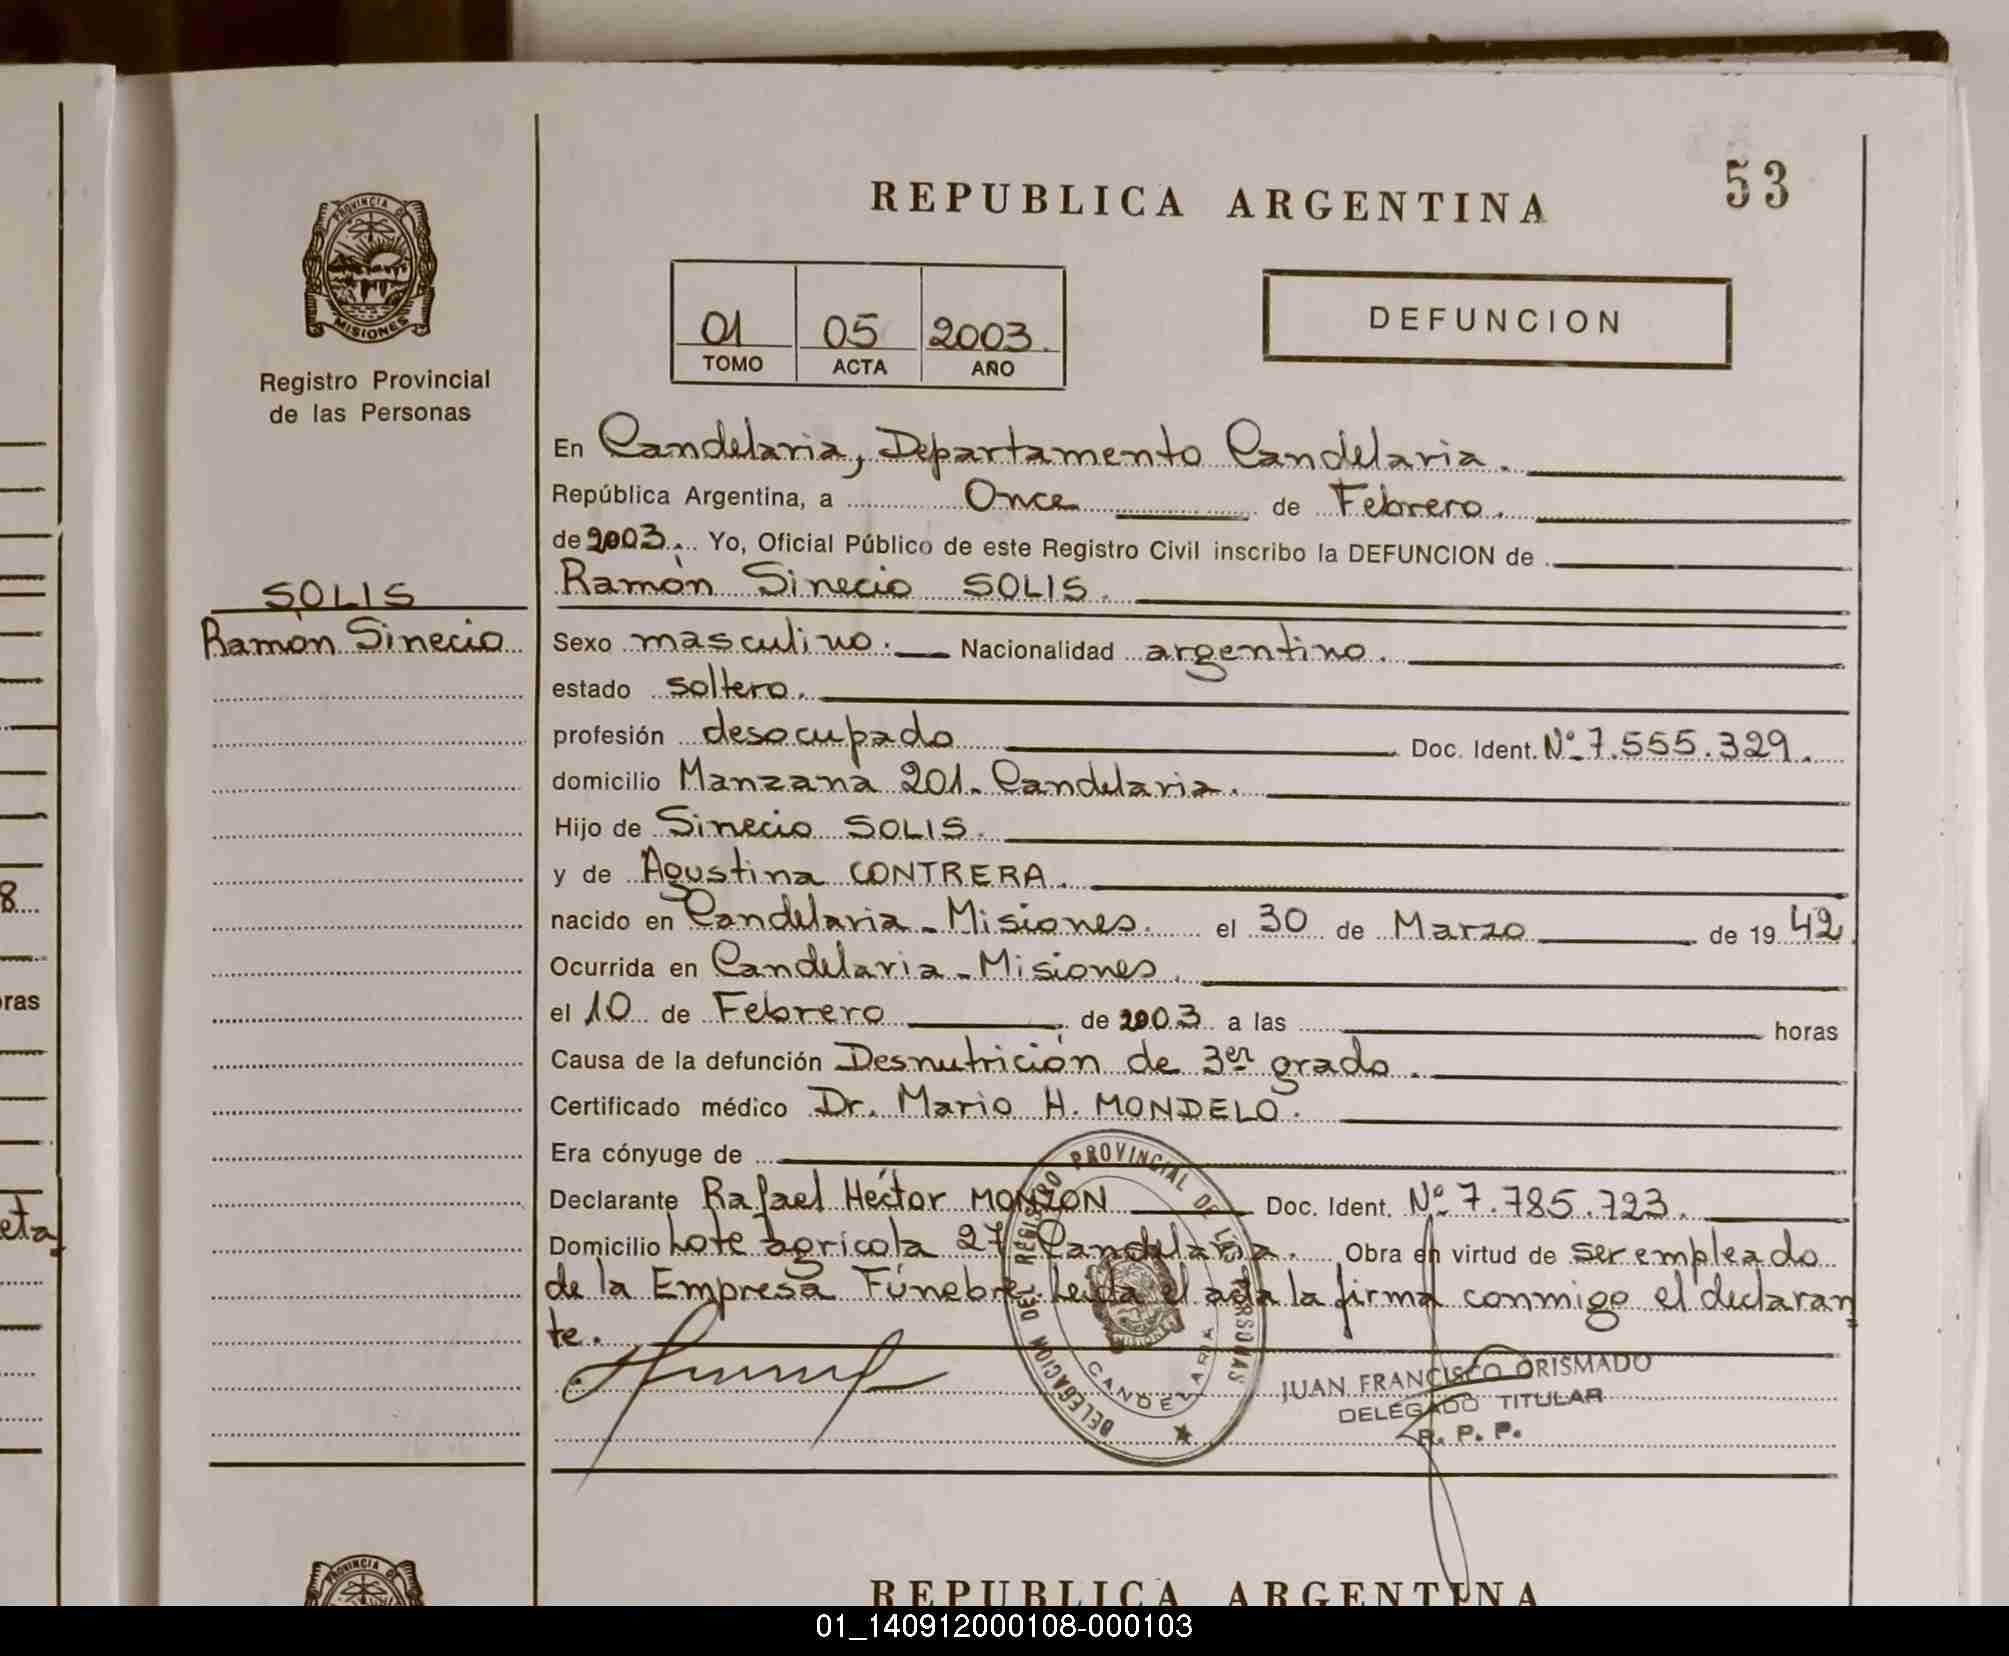 53
REPUBLICA ARGENTINA
PROVINCIA DE
MISIONES
Registro Provincial
de las Personas
01 05 2003.
TOMO ACTA AÑO
DEFUNCION
En Candelaria, Departamento Candelaria.
República Argentina, a Once de Febrero.
de 2003. Yo, Oficial Público de este Registro Civil inscribo la DEFUNCION de
SOLIS
Ramón Sinecio
Ramón Sinecio SOLIS.
Sexo masculino. Nacionalidad argentino.
estado soltero.
profesión desocupado Doc. Ident. Nº 7.555.329.
domicilio Manzana 201- Candelaria.
Hijo de Sinecio SOLIS.
y de Agustina CONTRERA.
nacido en Candelaria-Misiones. el 30 de Marzo de 1942.
Ocurrida en Candelaria-Misiones.
el 10 de Febrero de 2003 a las horas
Causa de la defunción Desnutrición de 3er grado.
Certificado médico Dr. Mario H. MONDELO.
Era cónyuge de
Declarante Rafael Héctor MONZON Doc. Ident. Nº 7.785.723.
Domicilio Lote agrícola 27 Candelaria. Obra en virtud de ser empleado
de la Empresa Fúnebre. Leída el acta la firma conmigo el declaran
te.
DELEGACION DEL REGISTRO PROVINCIAL DE LAS PERSONAS
CANDELARIA
MISIONES
JUAN FRANCISCO ORISMADO
DELEGADO TITULAR
R. P. P.
8
oras
eta
PROVINCIA
REPUBLICA ARGENTINA
01_140912000108-000103